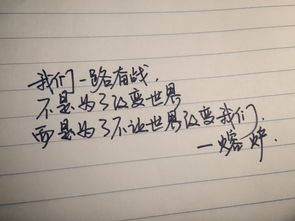 我们一路奋战，
不是为了改变世界
而是为了不让世界改变我们.
—熔炉.